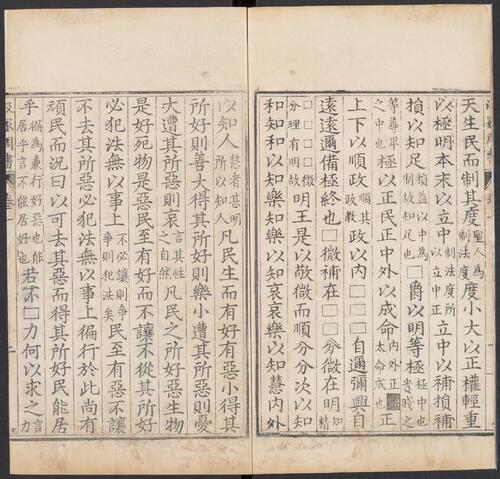 天生民而制其度聖人為制法度度小大以正權輕重
以極明本末以立中制法度所以立中正立中以補損補
損以知足損益以中為制故知足也□爵以明等極極中也貴賤之
等尊卑之中也極以正民正中外以成命內外正大命成也正
上下以順政順其政教政以內□□□□自邇彌興自
遠遠邇備極終也□微補在□□分微在明知精
□□□□微分理有明明王是以敬微而順分分次以知
和知和以知樂知樂以知哀哀樂以知慧內外
以知人慧者甚明所以知人凡民生而有好有惡小得其
所好則善大得其所好則樂小遭其所惡則憂
大遭其所惡則哀言其性之自然凡民之所好惡生物
是好死物是惡民至有好而不讓不從其所好
必犯法無以事上不必讓則爭爭則犯法矣民至有惡不讓
不去其所惡必犯法無以事上徧行於此尚有
頑民而況曰以可去其惡而得其所好民能居
乎徧為兼行好惡也能居乎言不能居好也若不□力何以求之力言